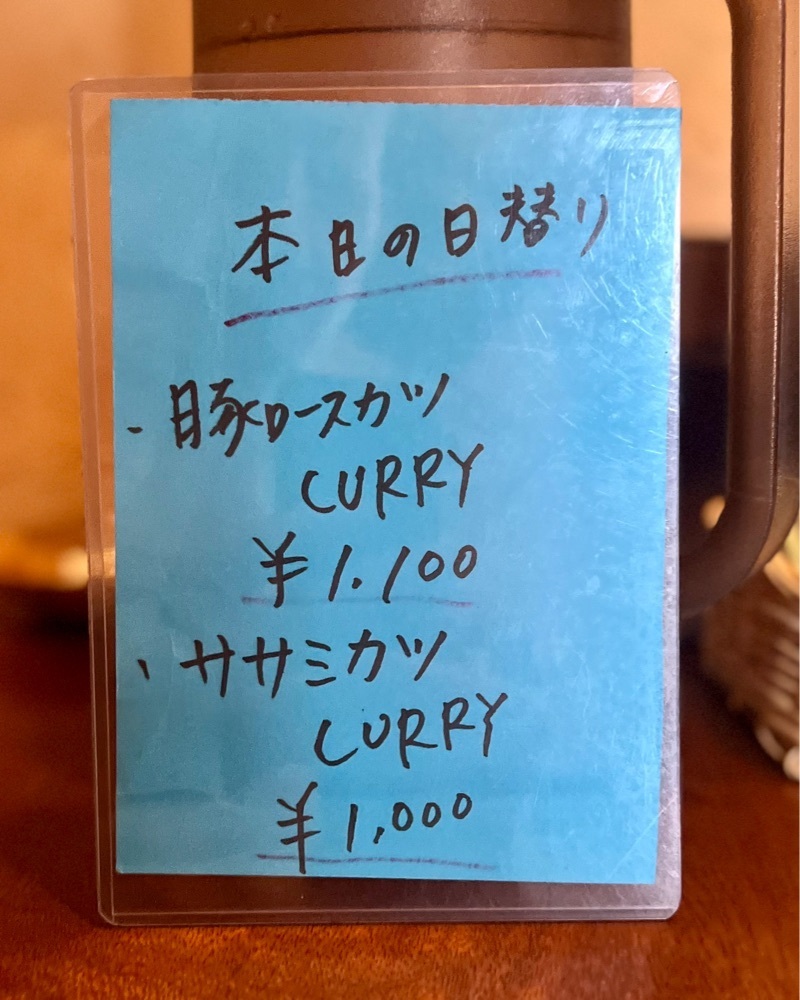 本日の日替り
・豚ロースカツ
CURRY
¥1.100
・ササミカツ
CURRY
¥1,000